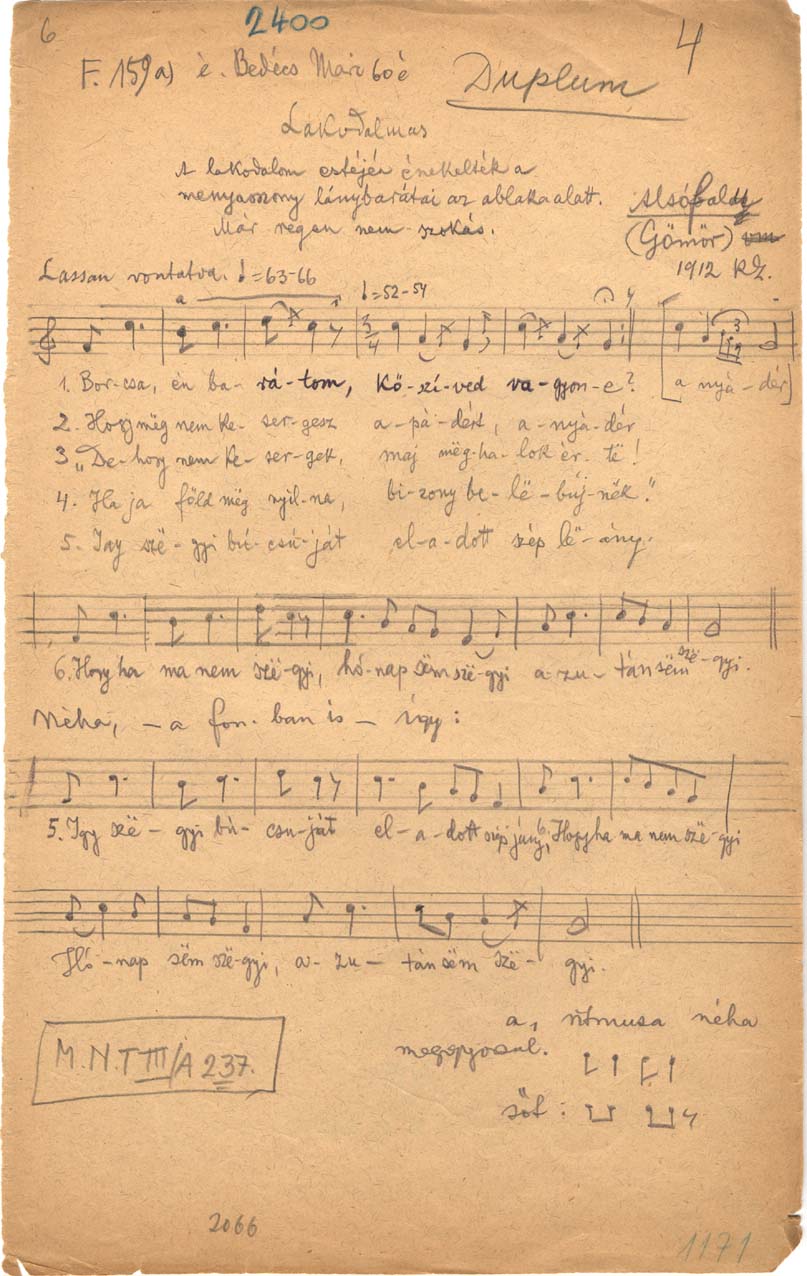 6
2400
4
F. 159a) é. Bedécs Mári 60 é
Duplum
Lakodalmas
A lakodalom estéjén énekelték a
menyasszony lánybarátai az ablaka alatt.
Már régen nem szokás.
Alsófalu
(Gömör) vm
1912 KZ.
Lassan vontatva. ♩=63-66
♩=52-54
a
3/4
3
1. Bor-csa, én ba- rá-tom, Kő-szí-ved va-gyon-e? [a nyá-dér]
2. Hogy még nem ke- ser-gesz a-pá-dért, a-nyá-dér
3. „De-hogy nem ke- ser-gek, maj mëg-ha-lok ér- të!
4. Ha ja föld még nyíl-na, bi-zony be-lë-búj-nék."
5. Így szë-gyi bú-csú-ját el-a-dott szép lë-ány.
6. Hogy ha ma nem szë-gyi, hó-nap sëm szë-gyi a-zu-tán sëm szë-gyi.
Néha, - a fon.ban is - így:
5. Így szë- gyi bú- csu-ját el-a-dott szép jány, 6. Hogy ha ma nem szë-gyi
Hó-nap sëm szë-gyi, a-zu- tán sëm szë- gyi.
a, ritmusa néha
megegyösül.
söt:
M.N.T III/A 237.
2066
1171